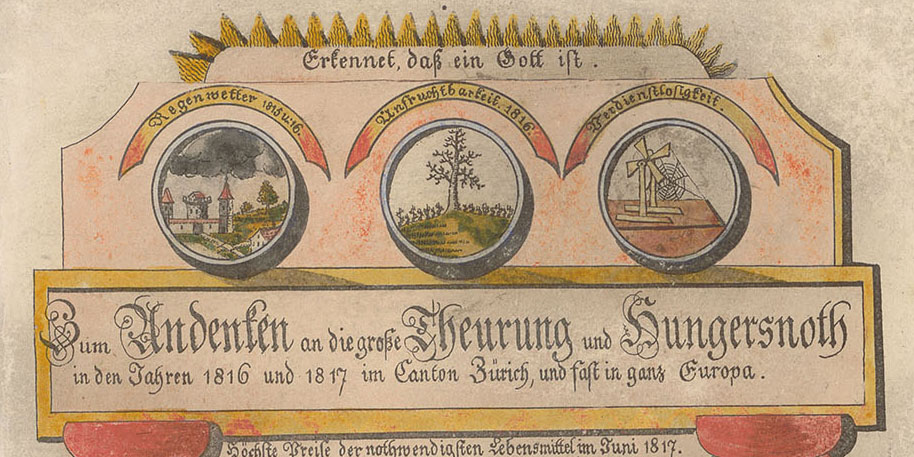 Erkennet, daß ein Gott ist.
Regenwetter 1815 u 16.
Unfruchtbarkeit. 1816.
Verdienstlosigkeit.
Zum Andenken an die große Theurung und Hungersnoth
in den Jahren 1816 und 1817 im Canton Zürich, und fast in ganz Europa.
Höchste Preise der nothwendigsten Lebensmittel im Juni 1817.